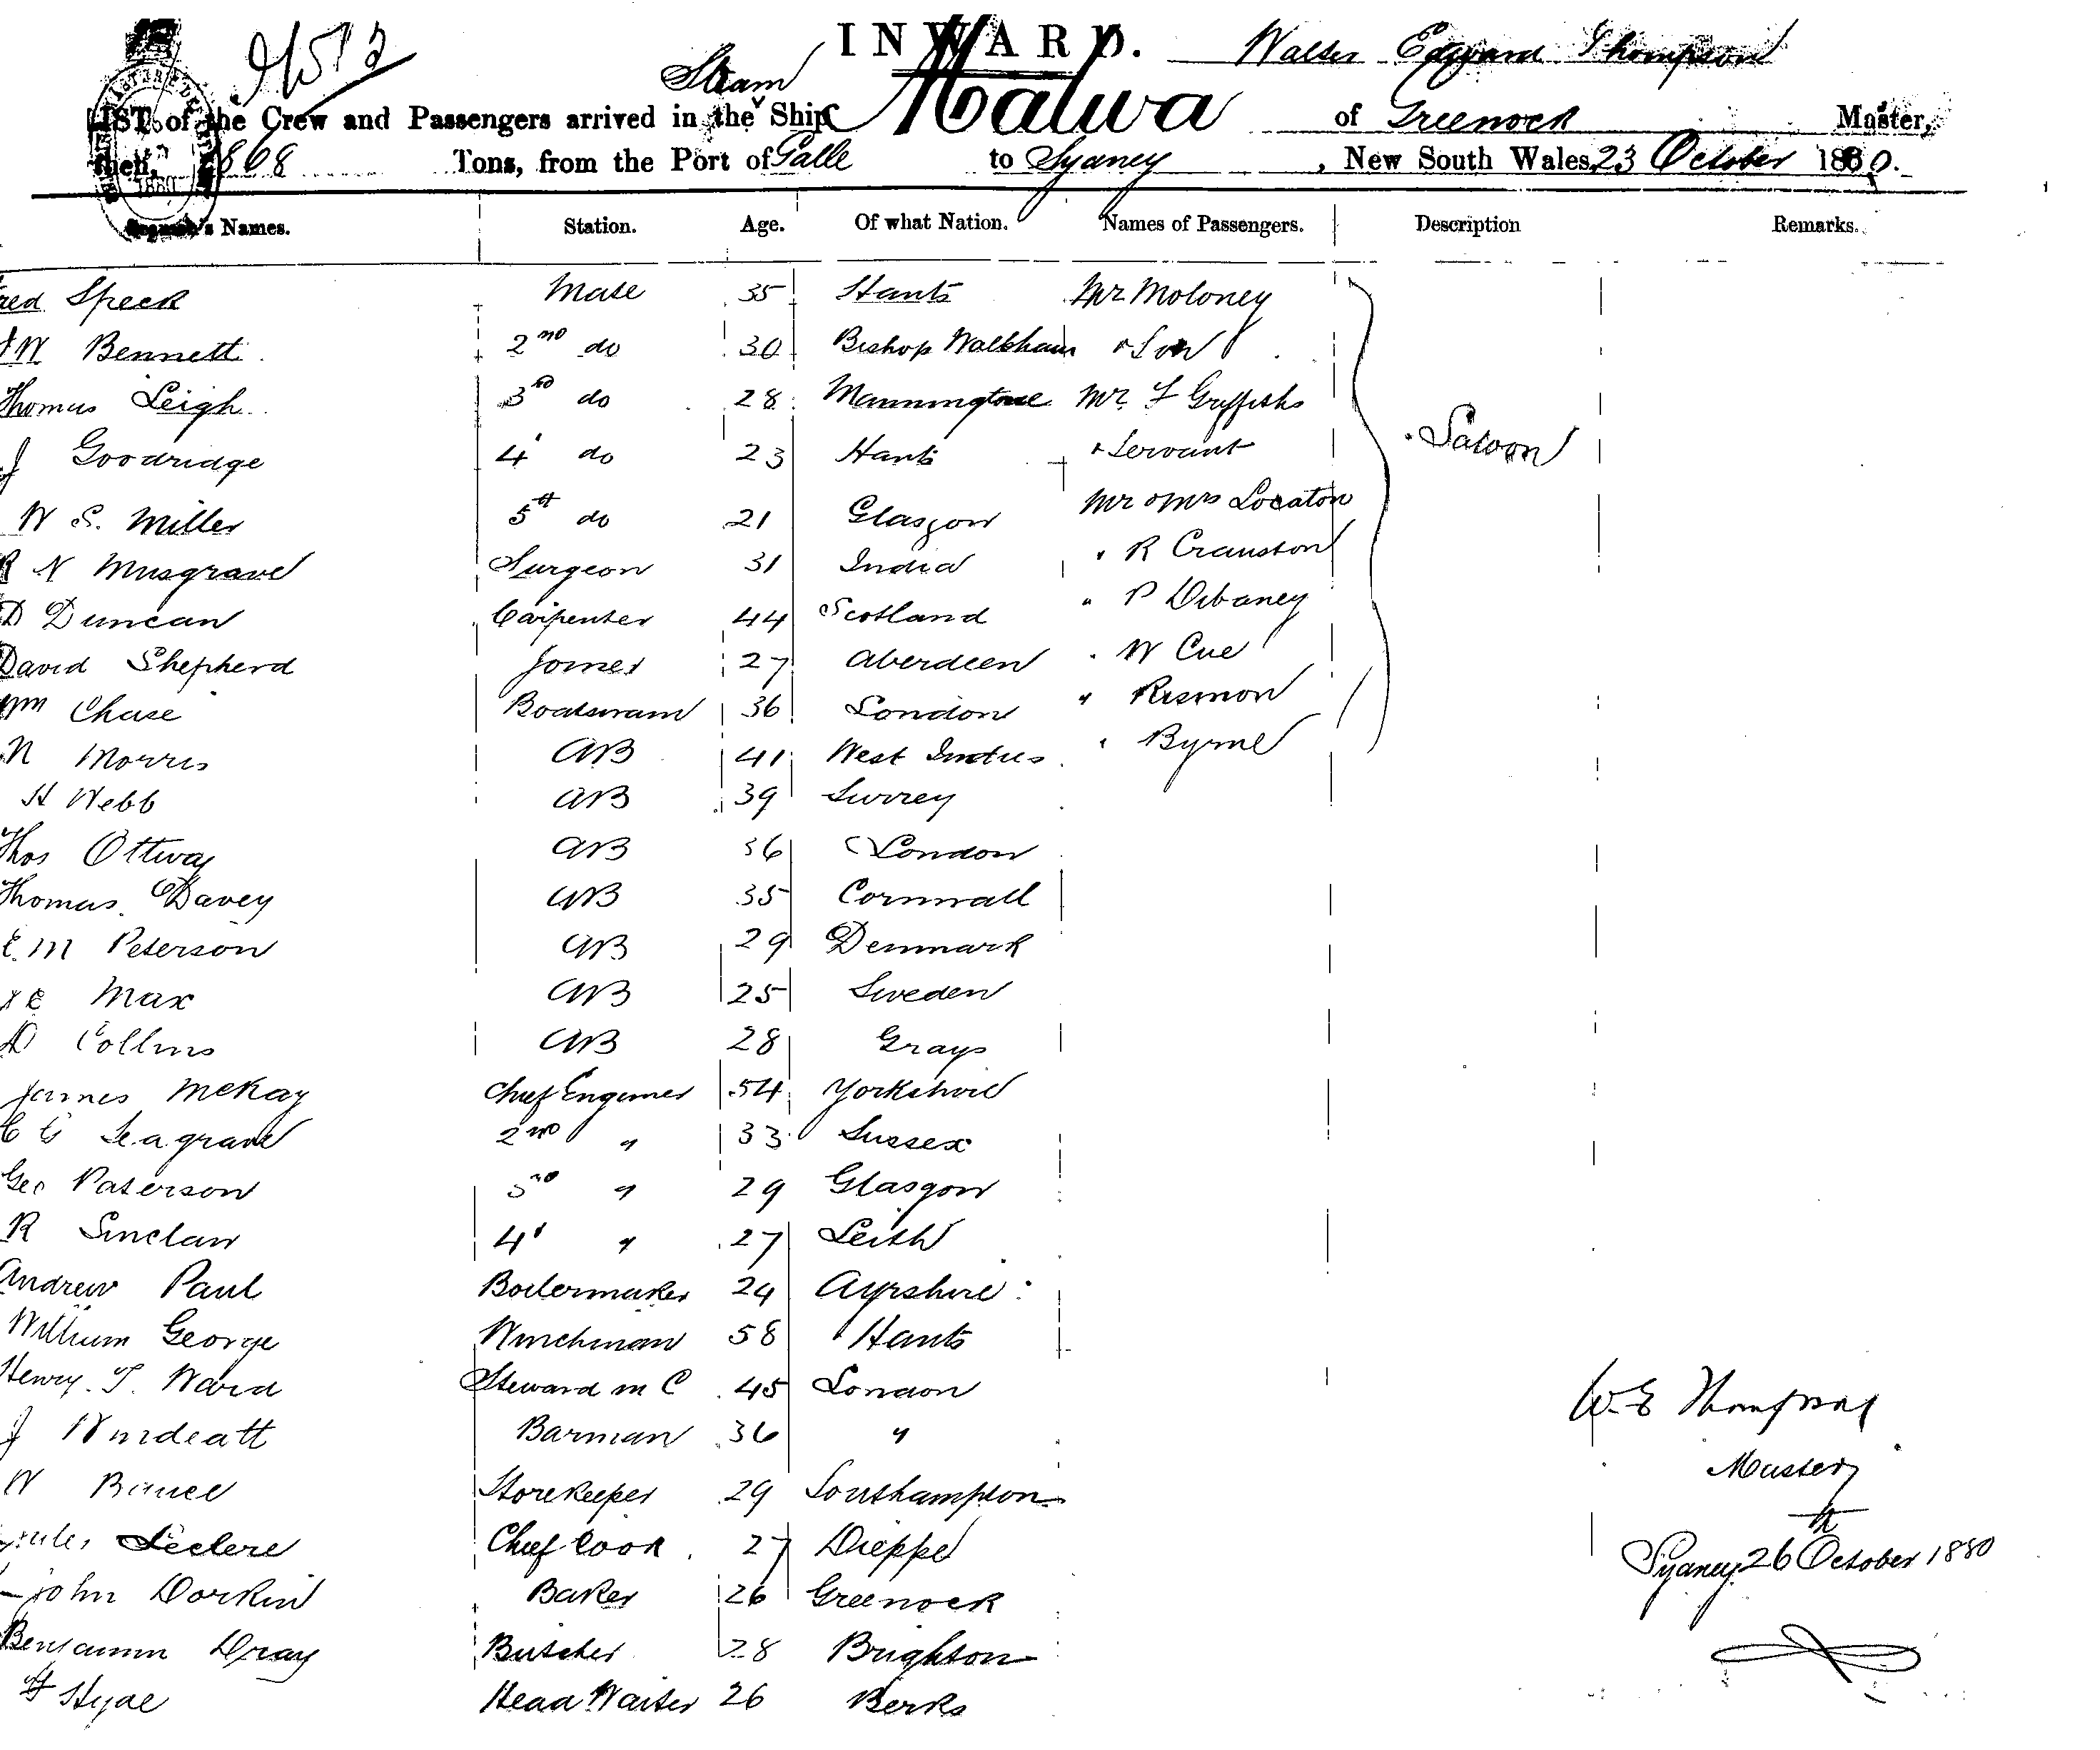 INWARD. Walter Edward Thompson
Steam
LIST of the Crew and Passengers arrived in the Ship Malwa of Greenock Master,
Tons, from the Port of Galle to Sydney, New South Wales, 23 October 1880.
Names. Station. Age. Of what Nation. Names of Passengers. Description Remarks.
Speck Mate 35 Hants Mr Moloney
W Bennett 2nd do 30 Bishop Waltham & Son
Thomas Leigh 3rd do 28 Mr F Griffiths
J Goodridge 4th do 23 Hants & Servant Saloon
W S. Miller 5th do 21 Glasgow Mr & Mrs
R N Musgrave Surgeon 31 India " R Cranston
D Duncan Carpenter 44 Scotland " P
David Shepherd Joiner 27 Aberdeen " W Cue
Wm Chase Boatswain 36 London "
N Morris AB 41 West Indies " Byrne
H Webb AB 39 Surrey
Thos Ottway AB 36 London
Thomas Davey AB 35 Cornwall
E. M Peterson AB 29 Denmark
Max AB 25 Sweden
D Collins AB 28 Grays
James McKay Chief Engineer 54 Yorkshire
C G Seagrave 2nd " 33 Sussex
Geo Paterson 3rd " 29 Glasgow
R Sinclair 4th " 27 Leith
Andrew Paul Boilermaker 29 Ayrshire
William George Winchman 58 Hants
Henry. T. Ward Steward in C 45 London
J Windeatt Barman 36 "
W Storekeeper 29 Southampton
Jules Leclere Chief Cook 27 Dieppe
John Dorkin Baker 26 Greenock
Benjamin Dray Butcher 28 Brighton
H Hyde Head Waiter 26 Berks
W. E Thompson
Master
Sydney 26th October 1880